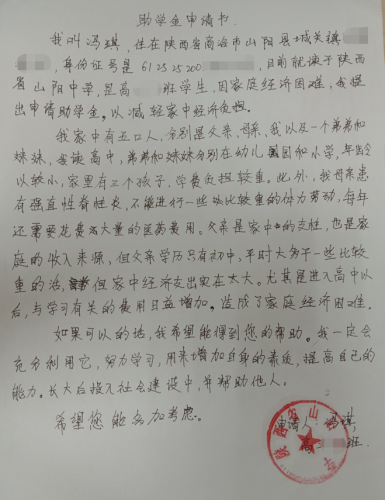 助学金申请书
我叫冯琪，住在陕西省商洛市山阳县城关镇
，身份证号是 6125 25 200 ，目前就读于陕西
省山阳中学，是高 班学生，因家庭经济困难，我提
出申请助学金。以减轻家中经济负担。
我家中有五口人，分别是父亲，母亲，我以及一个弟弟和
妹妹，我读高中，弟弟和妹妹分别在幼儿园和小学，年龄
以较小，家里有三个孩子，学费负担较重。此外，我母亲患
有强直性脊性炎，不能进行一些比较重的体力劳动，每年
还需要花费大量的医药费用。父亲是家中的支柱，也是家
庭的收入来源，但父亲学历只有初中，平时大多干一些比较
重的活，但家中经济支出实在太大。尤其是进入高中以
后，与学习有关的费用日益增加。造成了家庭经济困难.
如果可以的话，我希望能得到您的帮助。我一定会
充分利用它，努力学习，用来增加自身的素质，提高自己的
能力。长大后投入社会建设中，并帮助他人。
希望您能多加考虑。
申请人：冯琪
高 班.